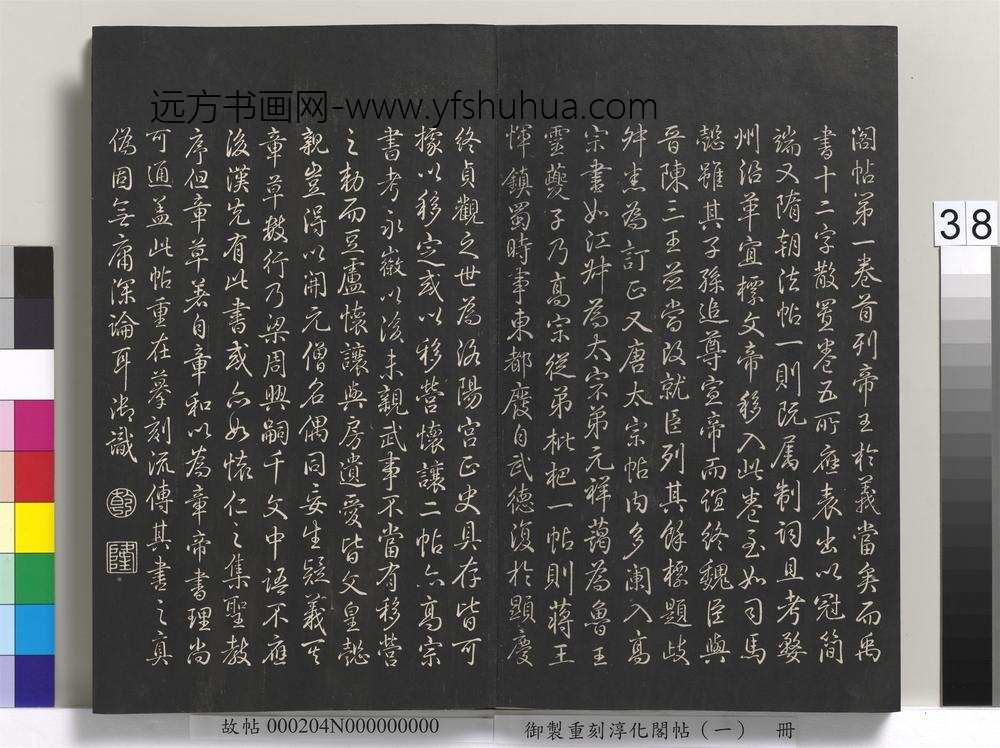 远方书画网-www.yfshuhua.com
閣帖第一卷首列帝王於義當矣而禹
書十二字散置卷五所應表出以冠簡
端又隋朝法帖一則既属制詞且考婺
州沿革宜標文帝移入此卷至如司馬
懿雖其子孫追尊宣帝而終魏臣與
晉陳三王並當改就臣列其餘標題歧
舛悉為訂正又唐太宗帖内多闌入高
宗書如江叔為太宗弟元祥藹為魯王
靈夔子乃高宗從弟枇杷一帖則蔣王
惲鎮蜀時事東都廢自武德復於顯慶
終貞觀之世為洛陽宮正史具存皆可
據以移定或以移營懷讓二帖亦高宗
書考永徽以後未親武事不當有移營
之勅而豆盧懷讓與房遺愛皆文皇懿
親豈得以開元僧名偶同妄生疑義至
章草數行乃梁周興嗣千文中語不應
後漢先有此書或亦如懷仁之集聖教
序但章草著自章和以為章帝書理尚
可通蓋此帖重在摹刻流傳其書之真
偽固無庸深論耳御識
乾
隆
38
故帖 000204N000000000
御製重刻淳化閣帖（一） 冊